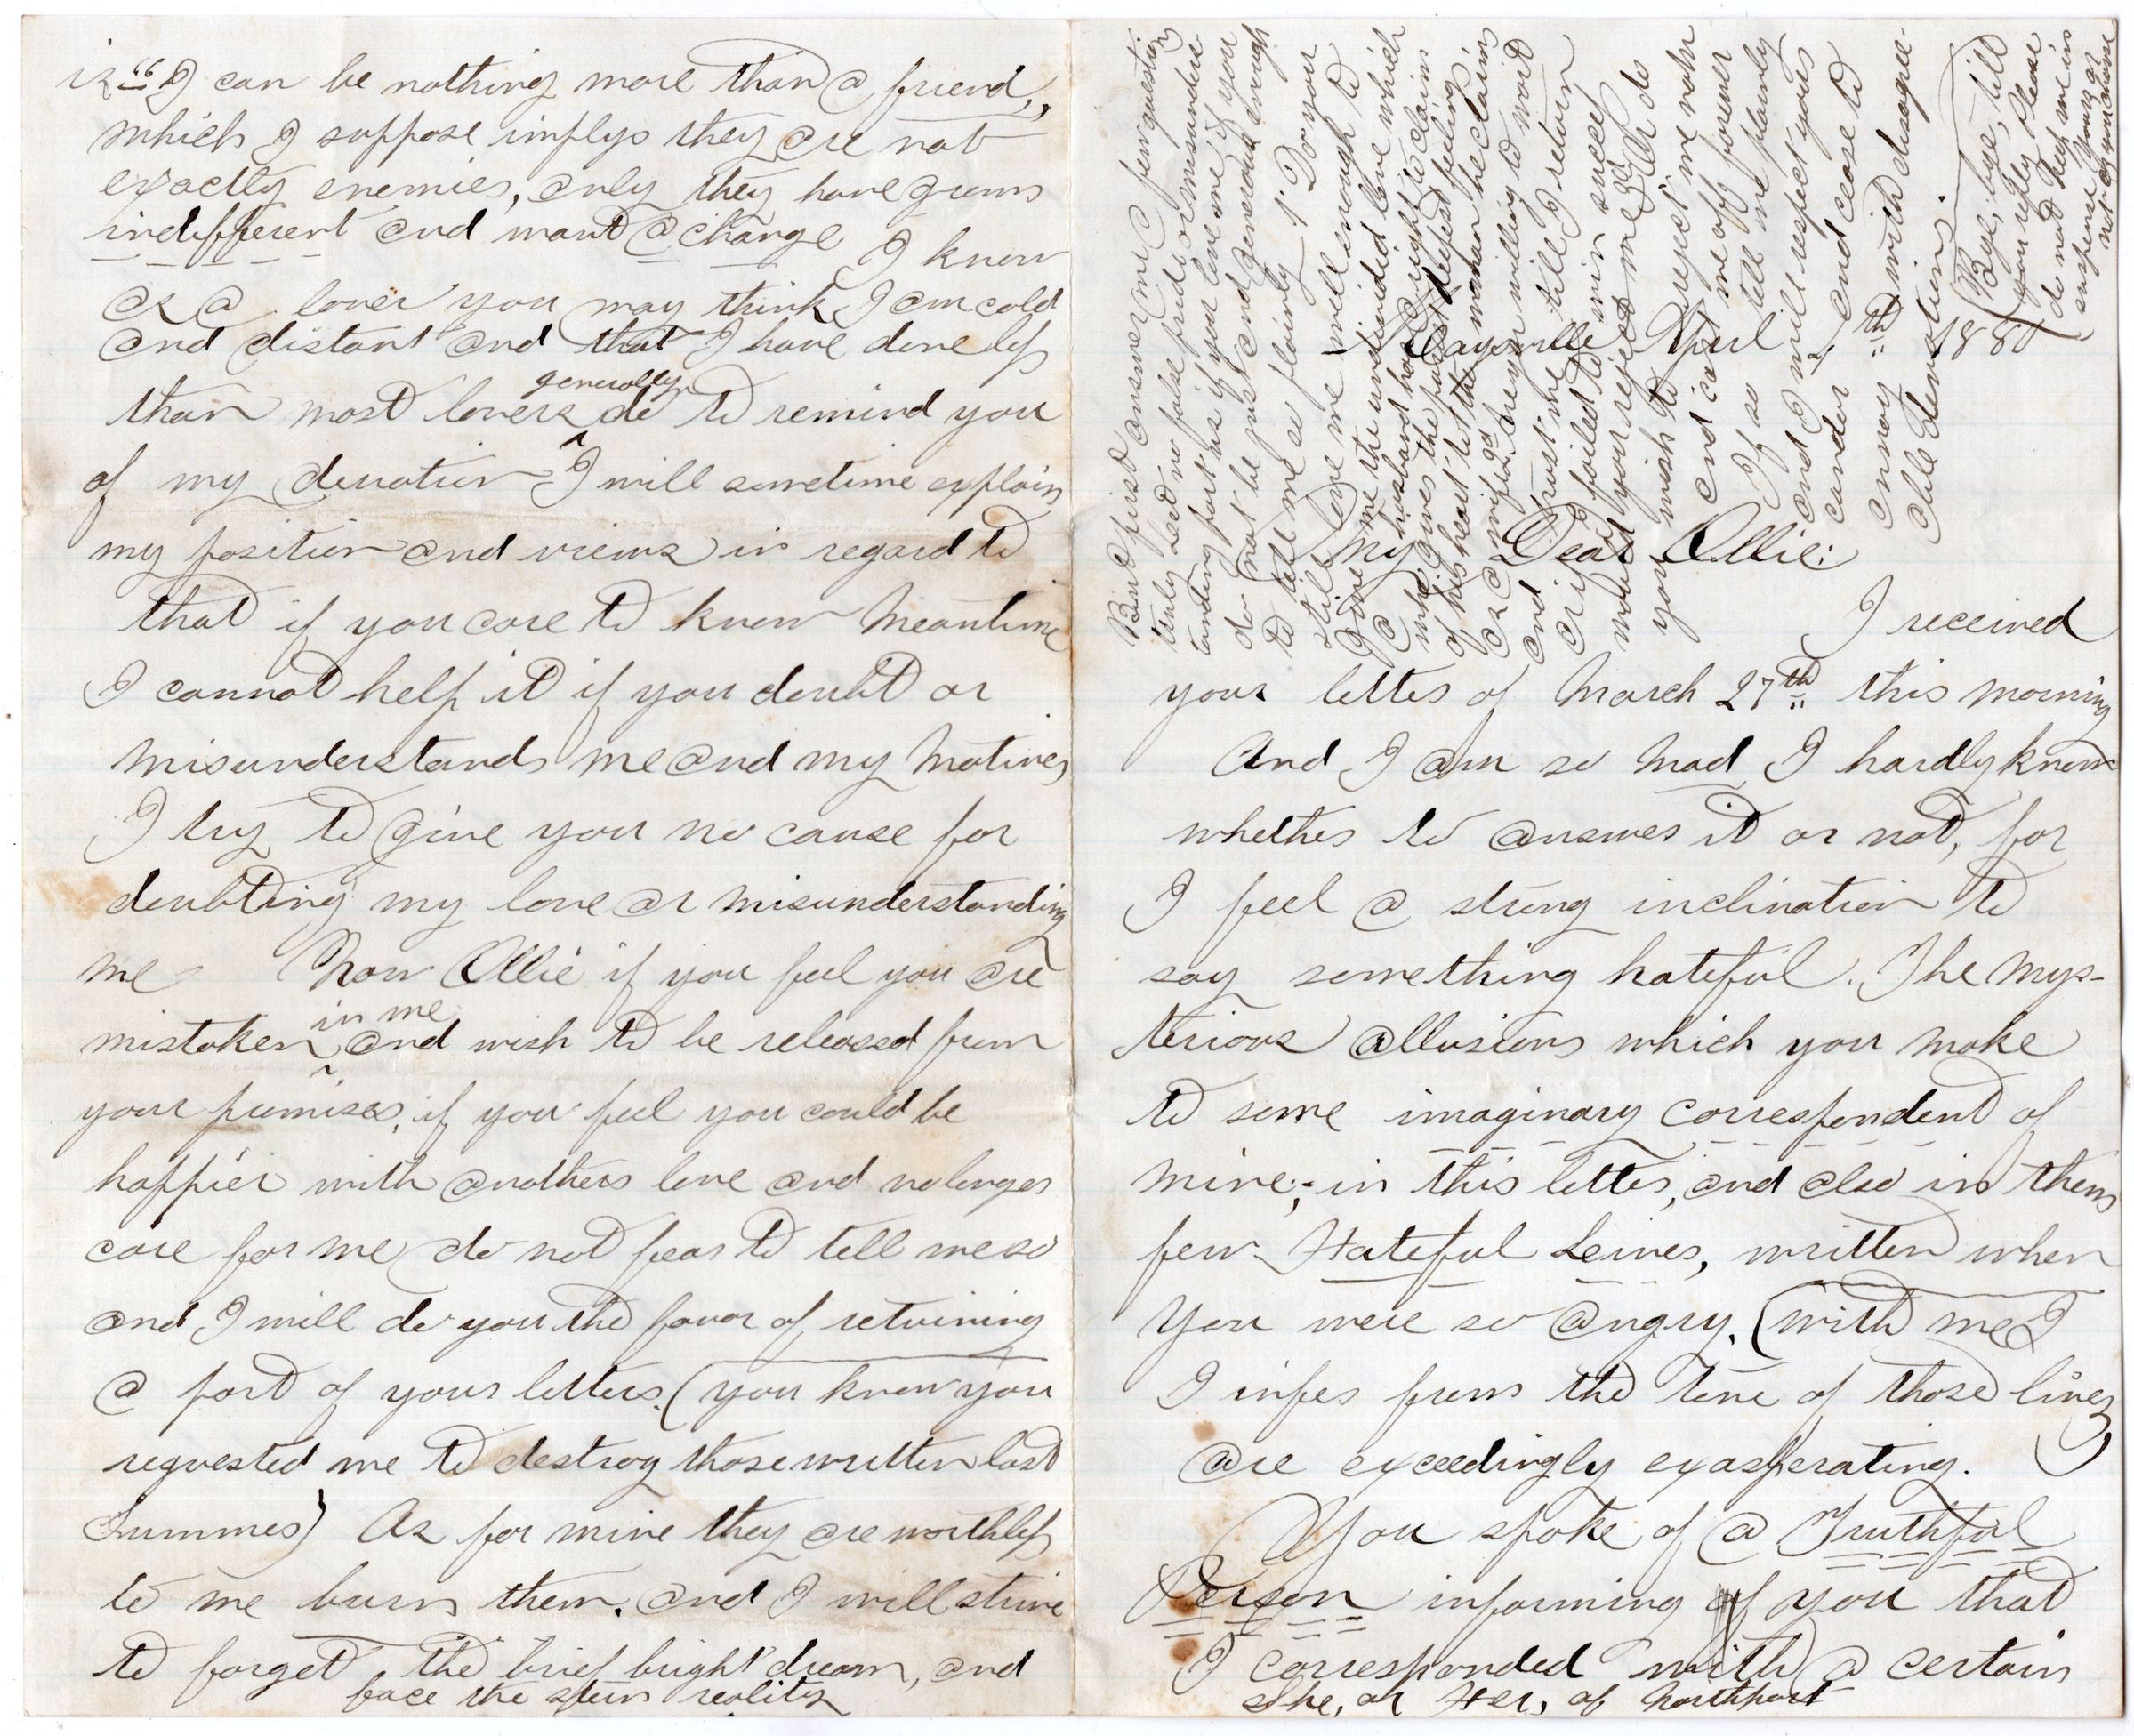 is “I can be nothing more than a friend,„
which I suppose implys they are not
exactly enemies, only they have grown
indifferent and want a change I know
as a lover you may think I am cold
and distant and that I have done less
than most lovers generally do to remind you
of my devotion I will sometime explain
my position and views in regard to
that if you care to know Meantime
I cannot help it if you doubt or
misunderstands me and my motives
I try to give you no cause for
doubting my love or misunderstanding
me Now Ollie if you feel you are
mistaken in me and wish to be released from
your promises, if you feel you could be
happier with anothers love and no longer
care for me do not fear to tell me so
and I will do you the favor of returning
a part of your letters. (you know you
requested me to destroy those written last
Summer) As for mine they are worthless
to me burn them. and I will strive
to forget the brief bright dream, and
face the stern reality
April 7th 1880
My Dear Ollie:
I received
your letter of March 27th this morning
And I am so mad I hardly know
whether to answer it or not, for
I feel a strong inclination to
say something hateful. The mys-
terious allusions which you make
to some imaginary correspondent of
mine;- in this letter, and also in them
few Hateful Leines, written when
You were so angry. (with me I
I infer from the tone of those lines)
are exceedingly exasperating.
You spoke of a Truthful
Person informing of you that
I corresponded with a certain
She, or Her, of Northport
But first answer me a few questions
truly and no false pride or misunders-
tanding part us if you love me if you
do not be just and generous enough
to tell me so plainly 1st Do you
still love me well enough to
give me the undivided love which
a husband has a right to claim
who gives the purest deepest feeling
of his heart to the woman he claims
as a wife 2d are you willing to wait
and trust me till I return
or if I failed to win success
would you reject me 3d Or do
you wish to reject me now
and cast me off forever
If so tell me plainly
and I will respect your
candor and cease to
annoy with disagree-
able devotion.
Bye, bye, till
you reply Please
do not keep me in
suspense Yours or
not as you choose